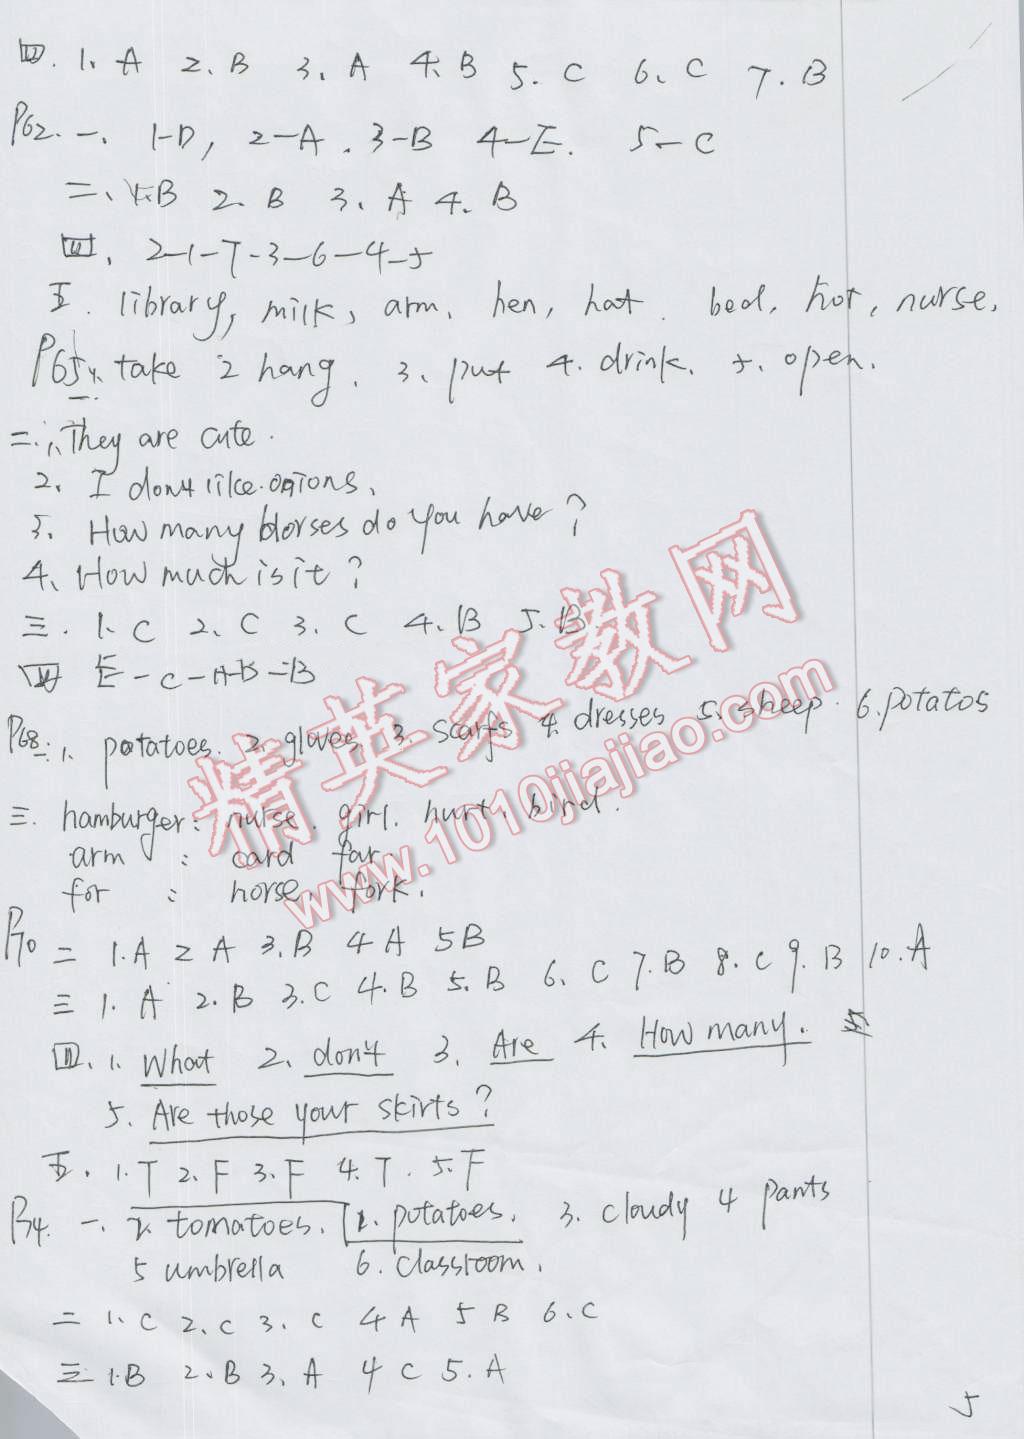 四. 1. A 2. B 3. A 4. B 5. C 6. C 7. B
P62. 一. 1-D, 2-A. 3-B 4-E. 5-C
二、1. B 2. B 3. A 4. B
四. 2-1-7-3-6-4-5
五. library, milk, arm, hen, hat. bed, hot, nurse.
P65 一. 1. take 2 hang. 3. put 4. drink. 5. open.
二. 1. They are cute.
2. I don't like onions.
3. How many horses do you have?
4. How much is it?
三. 1. C 2. C 3. C 4. B 5. B.
四 E-C-A-D-B
P68 二. 1. potatoes. 2. gloves 3. scarfs 4. dresses 5. sheep. 6. potatos
三. hamburger: nurse. girl. hurt. bird.
arm : card far.
for : horse. fork.
P70 二 1. A 2 A 3. B 4 A 5 B
三 1. A 2. B 3. C 4. B 5. B 6. C 7. B 8. C 9. B 10. A
四. 1. What 2. don't 3. Are 4. How many.
5. Are those your skirts?
五. 1. T 2. F 3. F 4. T. 5. F
P74. 一. 2. tomatoes. 1. potatoes. 3. cloudy 4 pants
5 umbrella 6. classroom.
二 1. C 2. C 3. C 4 A 5 B 6. C
三 1. B 2. B 3. A 4 C 5. A
5
精英家教网
www.1010jiajiao.com